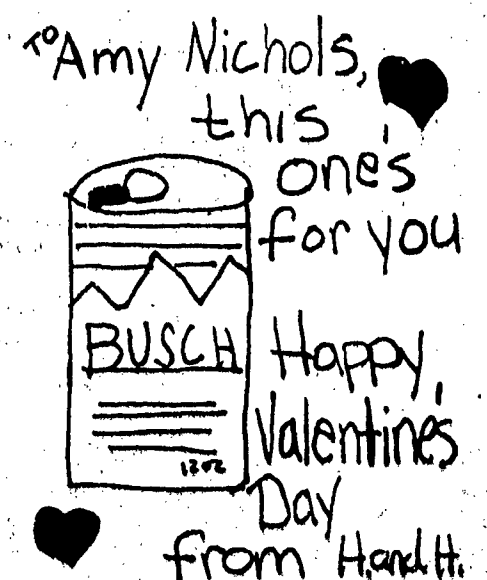 TO Amy Nichols,
this
one's
for you
BUSCH
12 oz
Happy
Valentine's
Day
from H. and H.